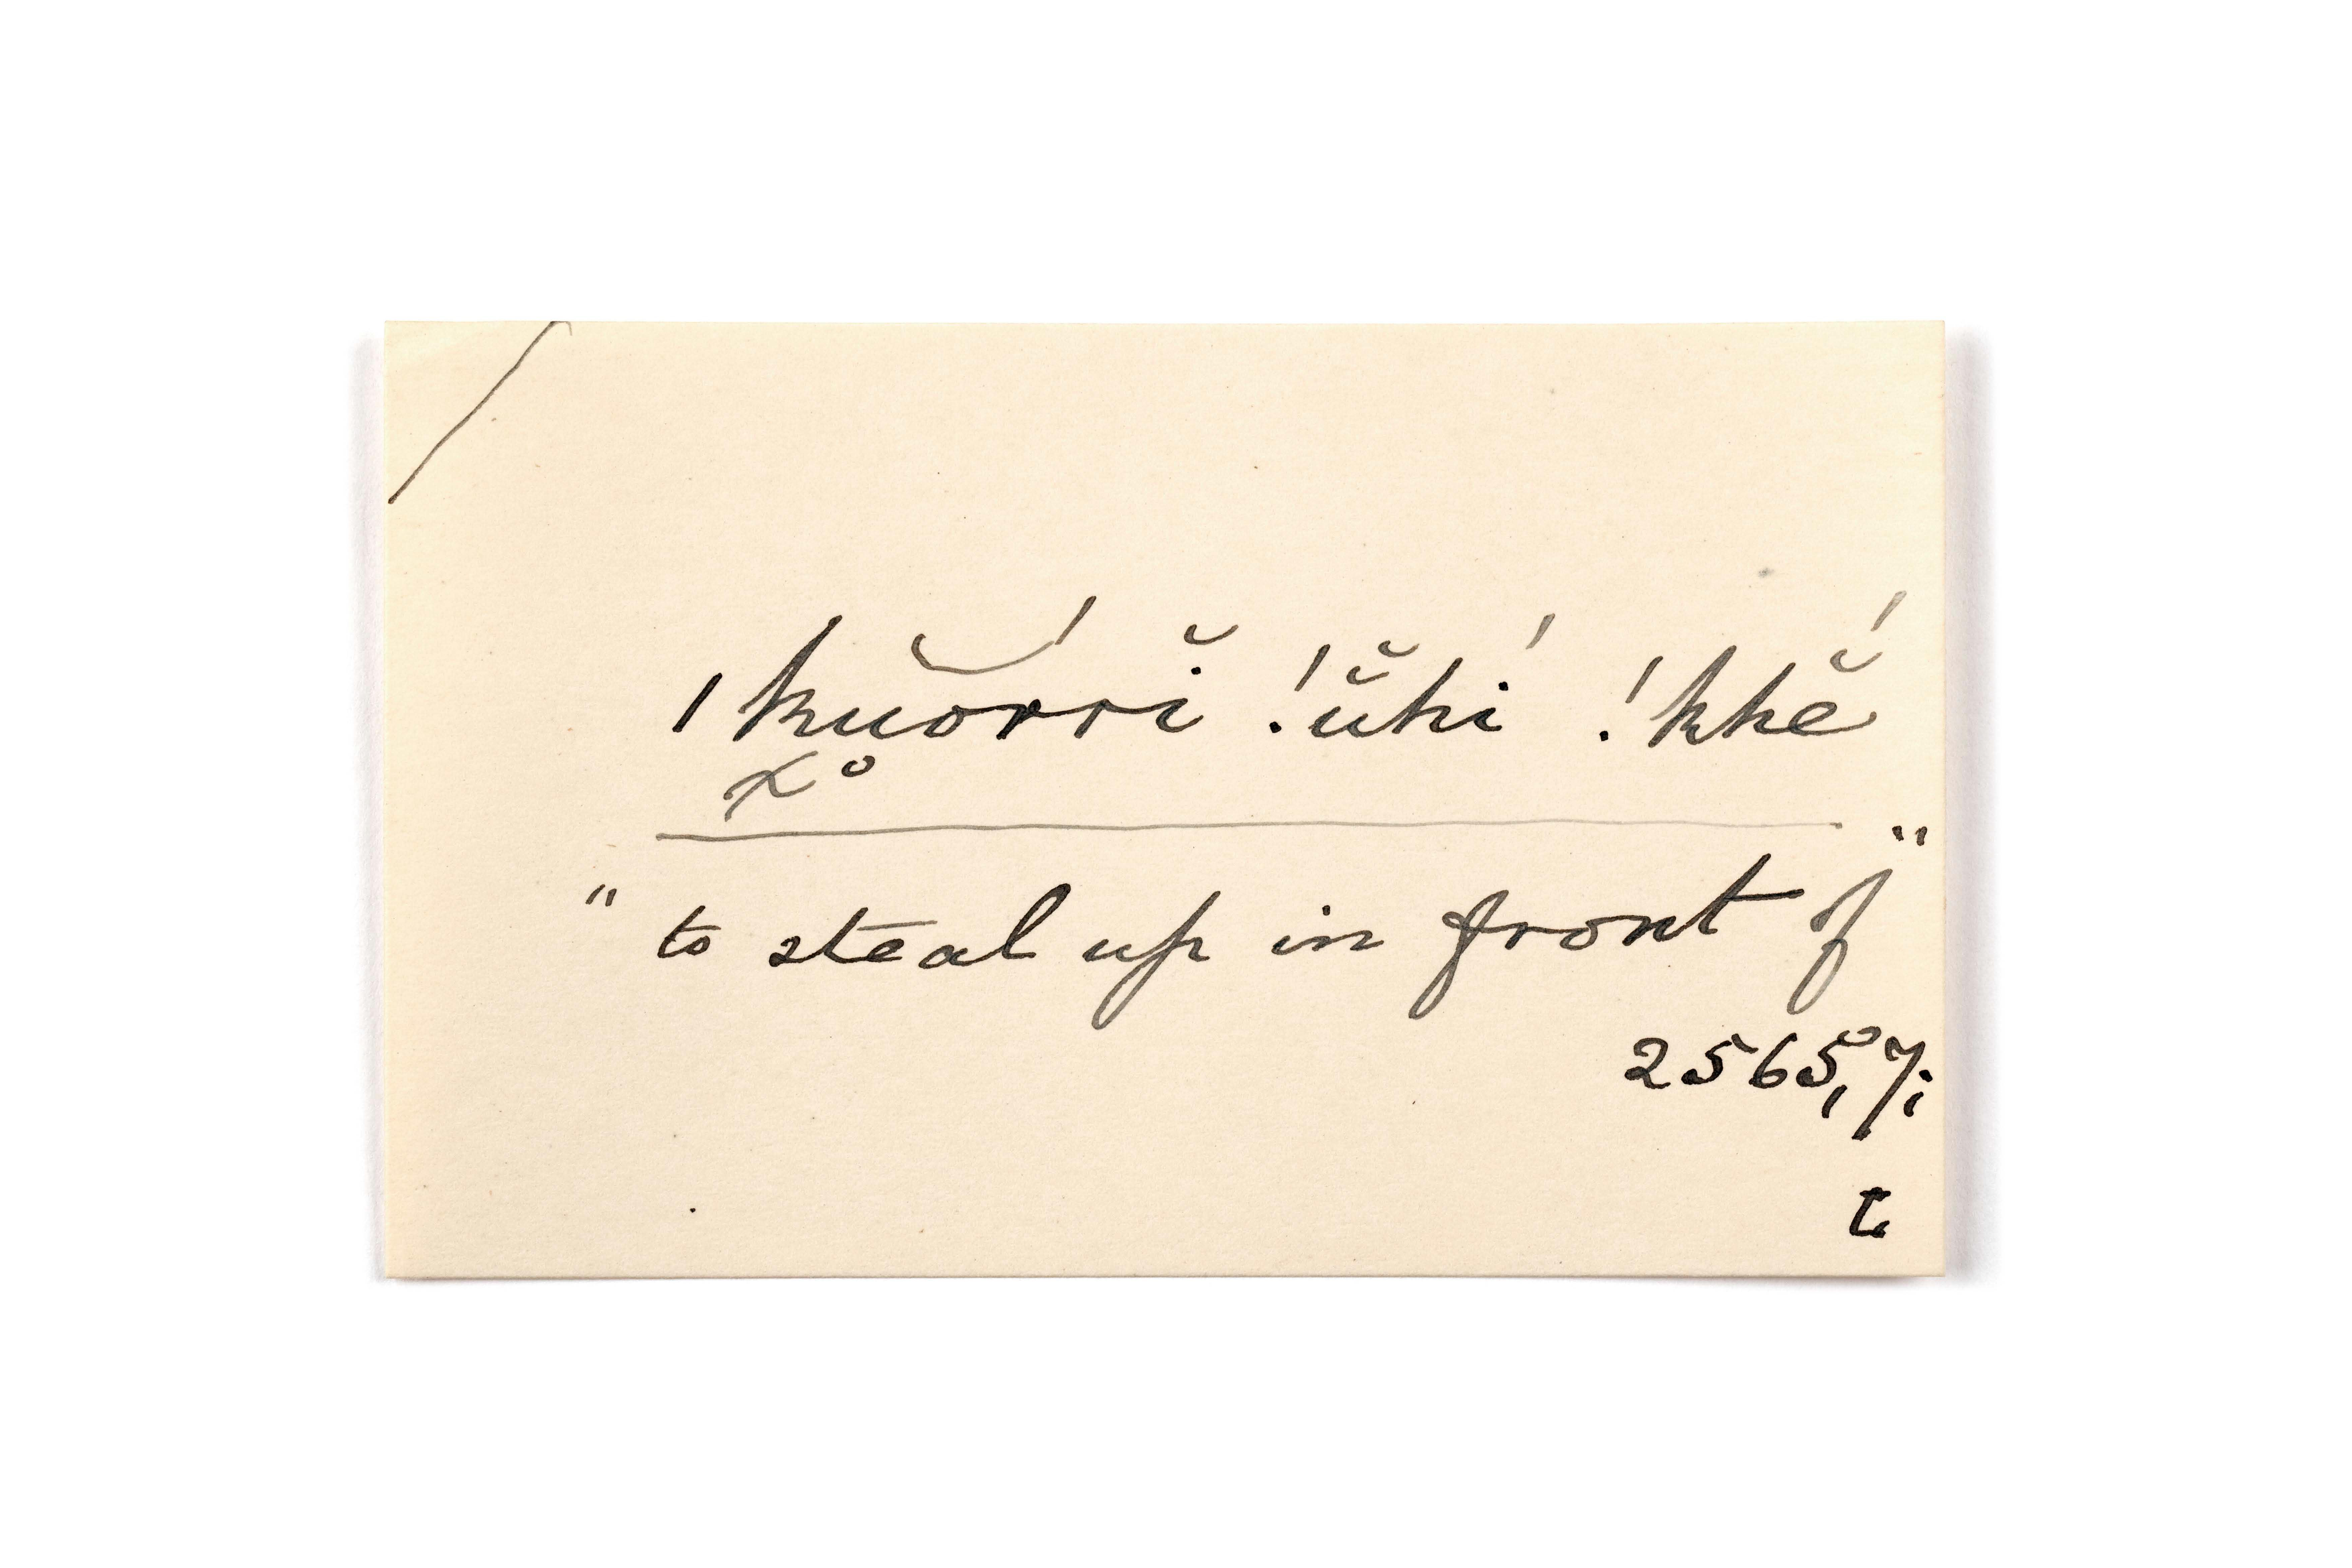 ǀkŭŏ́rrĭ !ŭhí !khĕ́
"to steal up in front of"
2565,7;